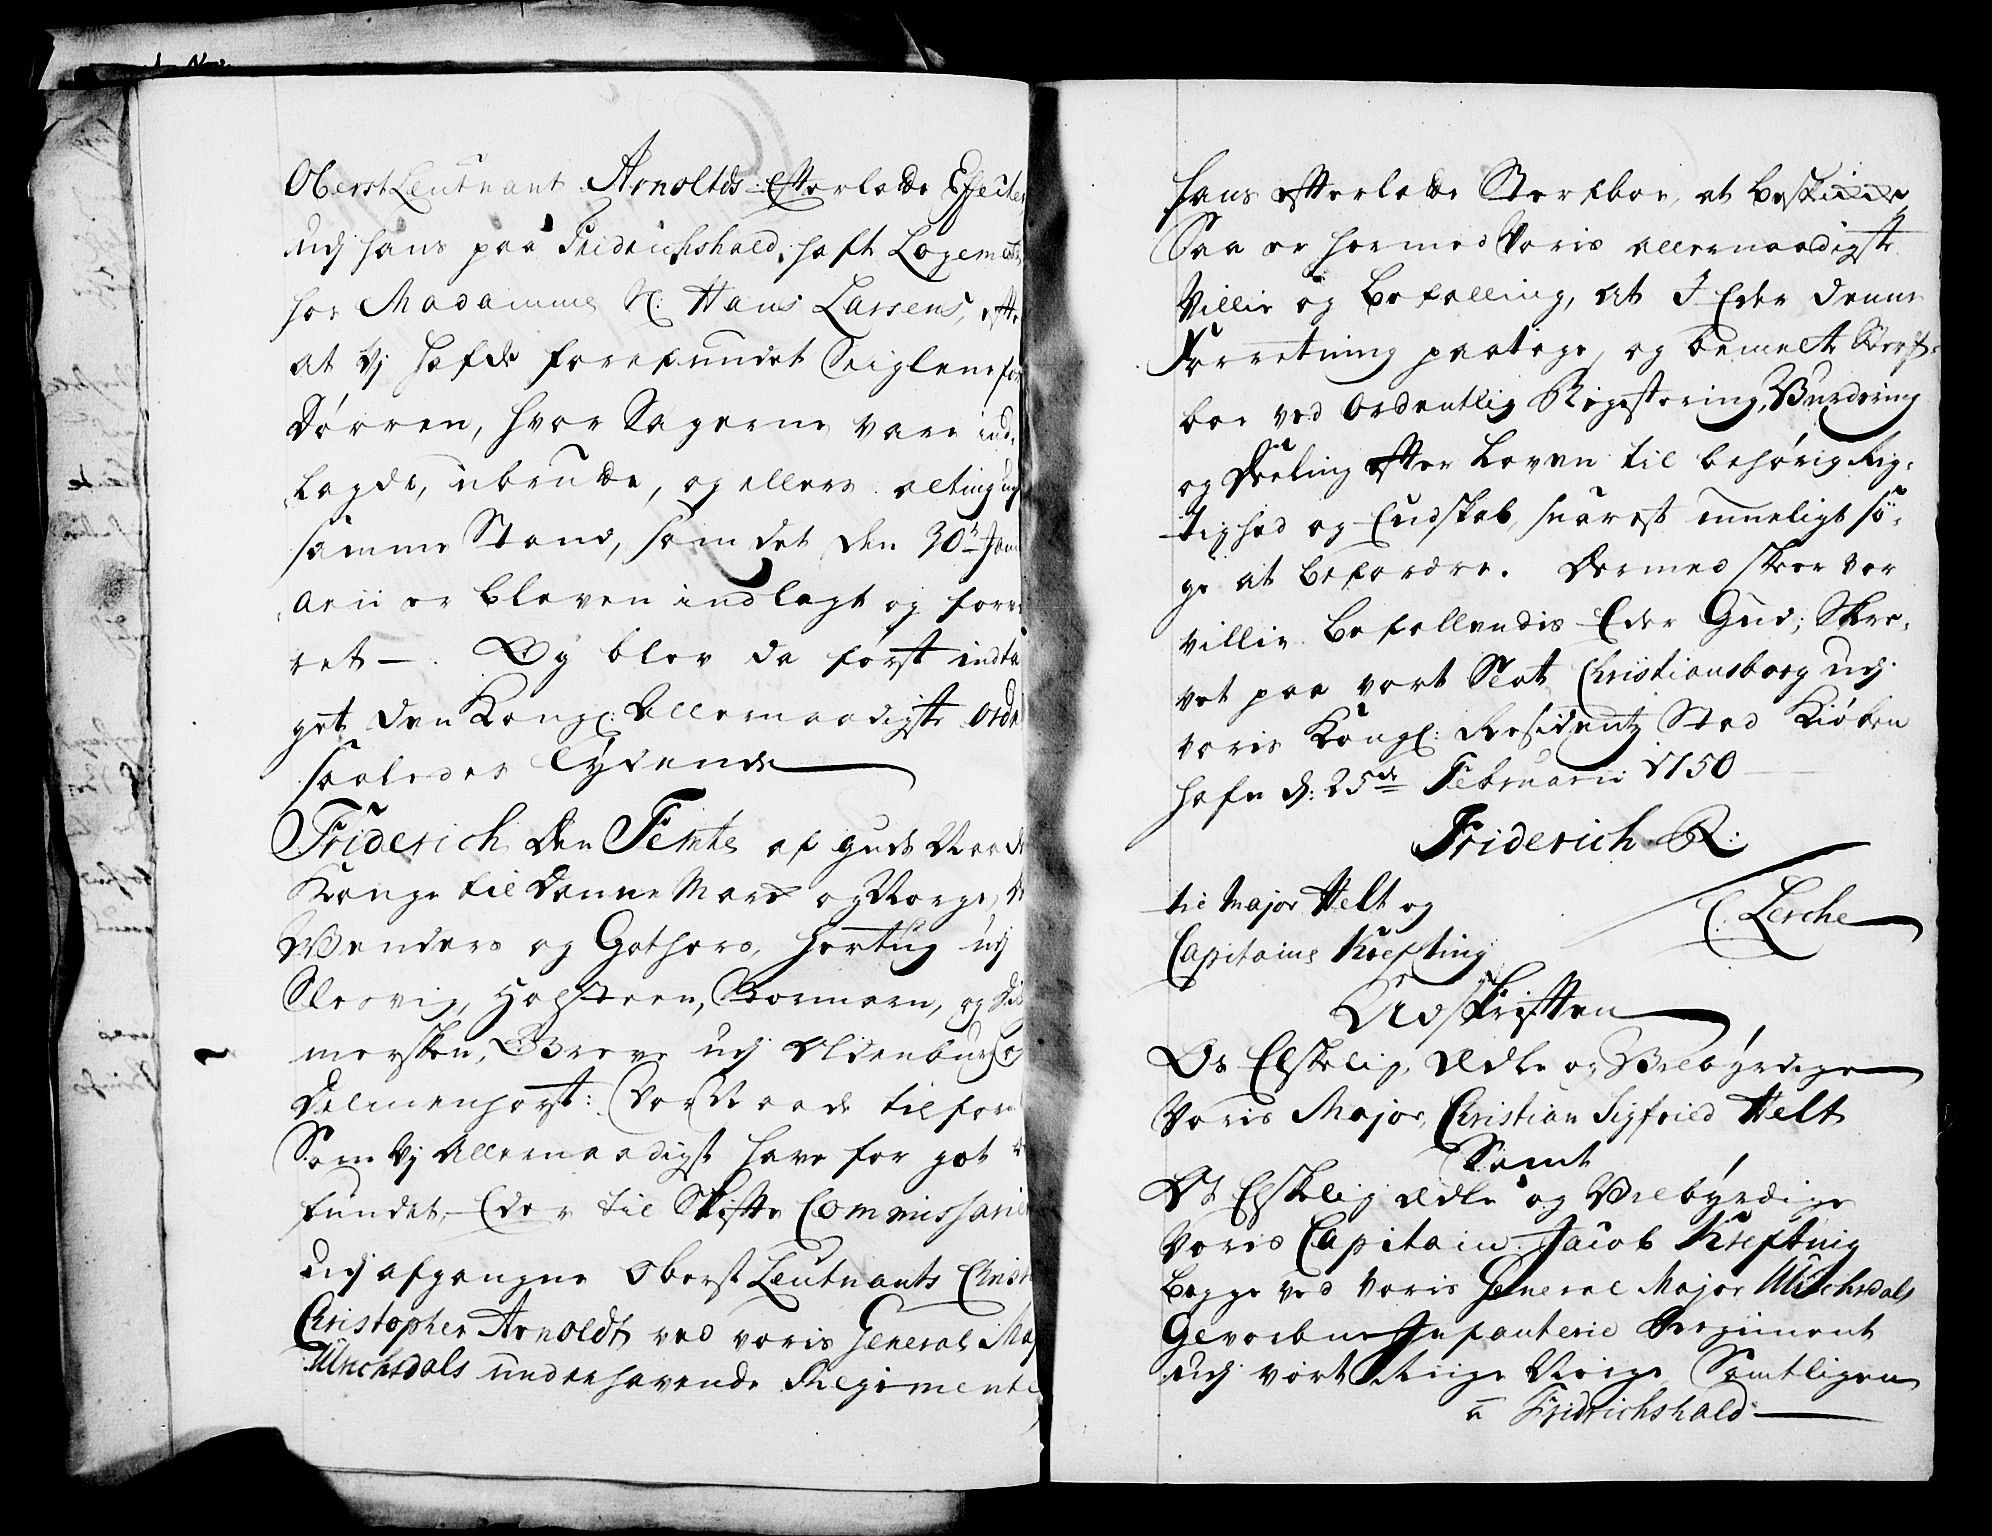 OberstLeutnant Arnoltds efterladte Effecter
udj hans paa Fridrichshald hafte Logemente
hos Madamme Sl: Hans Larsens, efter
at Vj hafde forefundet Seiglene for
Dørren, hvor Sagerne vare ind-
lagde, ubrudte, og ellers alting udj
samme Stand, som det den 30te Janu-
arii er bleven indlagt og forva-
ret —. Og blev da først indta-
get den Kongl: Allernaadigste Ordre
saaledes lydende
Friderich den Femte af Guds Naade
Konge til Dannemark og Norge, de
Wenders og Gothers, Hertug udj
Slesvig, Holsteen, Stormarn, og Dit-
mersken, Greve udj Oldenburg og
Delmenhorst: Vor Naade tilforn
Som Vj Allernaadigst have for got be-
fundet, Eder til Skifte Commissarier
udj afgangne Oberst Leutnants
Christopher Arnoldt, ved voris General Major
Ulrichsdals underhavende Regimente
hans efterladte Sterfboe, at beskikke
Saa er hermed Voris allernaadigste
Villie og Befalling, at I Eder denne
Forretning paatage, og bemelte Sterf-
boe ved Ordentlig Registering, Vurdering
og Deeling efter Loven til behørig Rig-
tighed og Endskab, snarest mueligt sø-
ge at befordre. Dermed skeer vor
villie. Befallendis Eder Gud; Skre-
vet paa vort Slot Christiansborg udj
voris Kongl: Residentz Stad Kiøben
hafn d: 25de Februarii 1750
Friderich R:
til Major Helt og
C. Lerche
Capitaine Krefting
Udskriften
Os Elskelig, Ædle og Velbyrdige
Voris Major, Christian Sigfried Helt
Samt
Os Elskelig Ædle og Velbyrdige
Voris Capitain Jacob Krefting
begge ved Voris General Major Ulrichsdals
Gevorbne Infanterie Regiment
udj vort Rige Norge Samtligen
a Fridrichshald